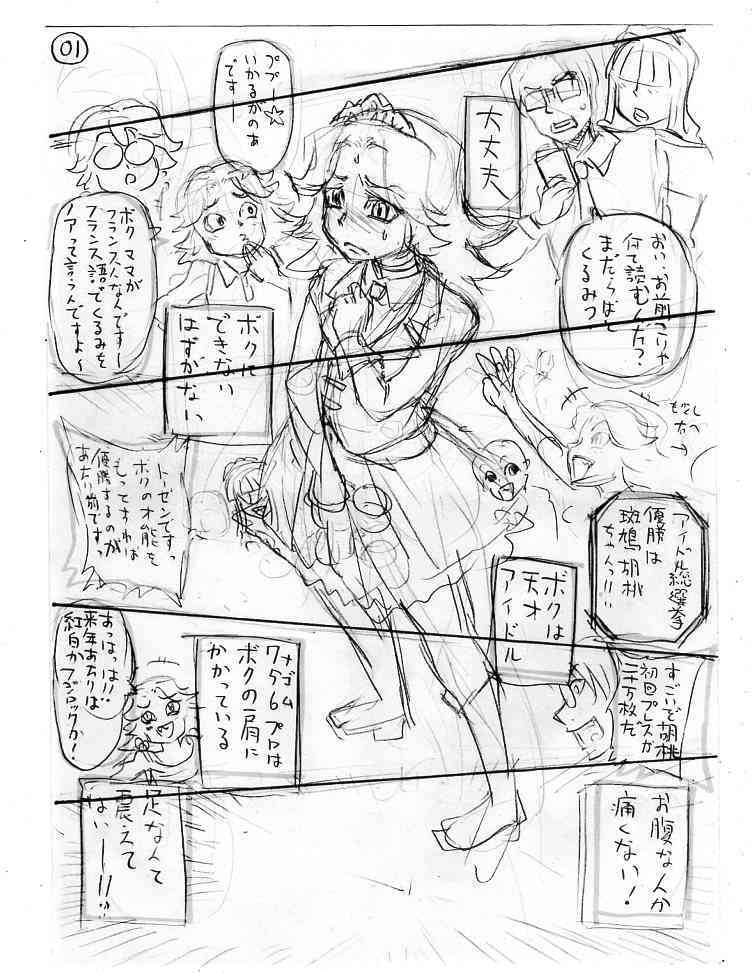 01
大丈夫
おい、お前こりゃ
何て読むんだ?
まだらばと
くるみっ
ププー☆
いかるがのぁ
ですー
ボクママが
フランス人なんですー
フランス語でくるみを
ノアって言うんですよ〜
ボクに
できない
はずがない
アイドル総選挙
優勝は
斑鳩胡桃
ちゃんっ!!
トーゼンですっ
ボクの才能を
もってすれば
優勝するのが
あたり前ですっ
ボクは
天才
アイドル
すごいぞ胡桃
初回プレスが
二十万枚だ
765プロは
ナゴム
ボクの肩に
かかっている
あっはっは!!
来年あたりは
紅白かフジロックか!
お腹なんか
痛くない!
足なんて
震えて
ないー!!